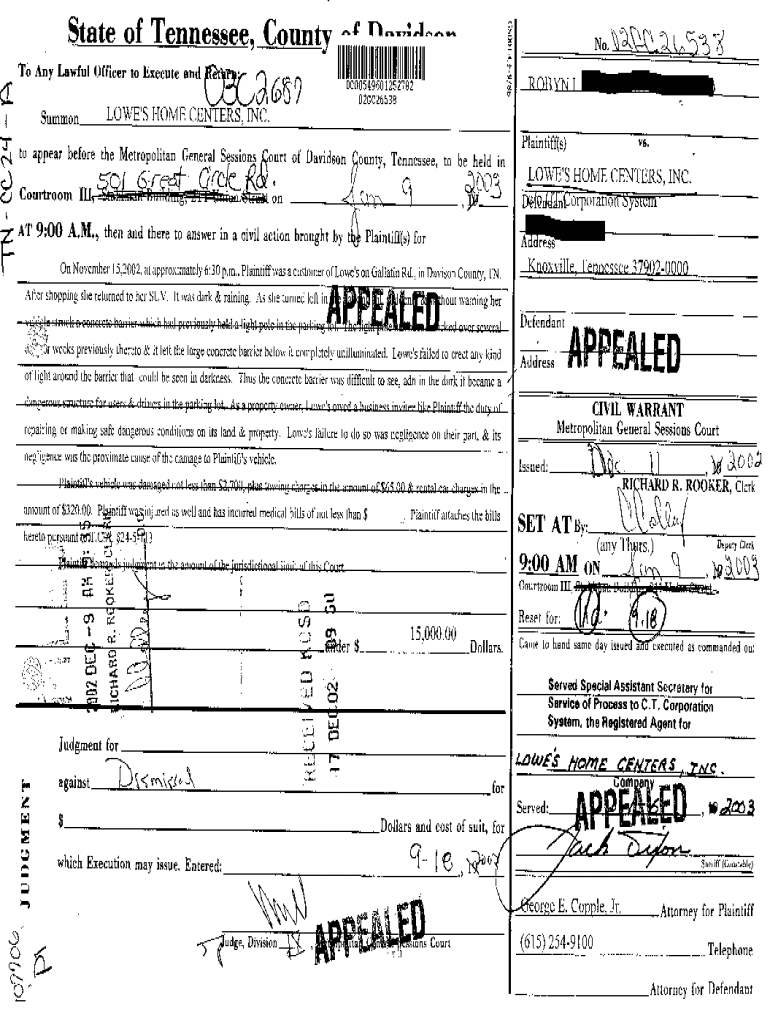 State of Tennessee, County of Davidson
To Any Lawful Officer to Execute and Return:
03C2687
DC00549601252782
02GC26538
Summon LOWE'S HOME CENTERS, INC.
to appear before the Metropolitan General Sessions Court of Davidson County, Tennessee, to be held in
501 Great Circle Rd.
Courtroom III, on Jan 9, 2003
AT 9:00 A.M., then and there to answer in a civil action brought by the Plaintiff(s) for
On November 15,2002, at approximately 6:30 p.m., Plaintiff was a customer of Lowe's on Gallatin Rd., in Davison County, TN.
After shopping she returned to her SUV. It was dark & raining. As she turned left in without warning her
APPEALED
vehicle struck a concrete barrier which had previously held a light pole in the parking lot. The light over several
weeks previously thereto & it left the large concrete barrier below it completely unilluminated. Lowe's failed to erect any kind
of light around the barrier that could be seen in darkness. Thus the concrete barrier was difficult to see, adn in the dark it became a
dangerous structure for users & drivers in the parking lot. As a property owner, Lowe's owed a business invitee like Plaintiff the duty of
repairing or making safe dangerous conditions on its land & property. Lowe's failure to do so was negligence on their part, & its
negligence was the proximate cause of the damage to Plaintiff's vehicle.
Plaintiff's vehicle was damaged not less than $2,700, plus towing charges in the amount of $65.00 & rental car charges in the
amount of $320.00. Plaintiff was injured as well and has incurred medical bills of not less than $ . Plaintiff attaches the bills
hereto pursuant to T.C.A. $24-5-113
Plaintiff demands judgment in the amount of the jurisdictional limit of this Court.
2002 DEC -9 AM 9:
RICHARD R. ROOKER, CLERK
RECEIVED KCSD
17 DEC 02
under $ 15,000.00 Dollars.
Judgment for
against Dismissal for
$ Dollars and cost of suit, for
which Execution may issue. Entered: 9-18, 2003
Judge, Division Sessions Court
APPEALED
TN-CC24-A
JUDGMENT
107706
No. 02GC26538
ROBYN
Plaintiff(s)
vs.
LOWE'S HOME CENTERS, INC.
Defendant
Corporation System
Address
Knoxville, Tennessee 37902-0000
Defendant
Address
APPEALED
CIVIL WARRANT
Metropolitan General Sessions Court
Issued: Dec 11, 2002
RICHARD R. ROOKER, Clerk
SET AT By:
(any Thurs.) Deputy Clerk
9:00 AM ON Jan 9, 2003
Courtroom III,
Reset for: 9-18
Came to hand same day issued and executed as commanded on:
Served Special Assistant Secretary for
Service of Process to C.T. Corporation
System, the Registered Agent for
LOWE'S HOME CENTERS, INC.
Company
Served: 2003
APPEALED
Jack Dixon
Sheriff (Constable)
George E. Copple, Jr. Attorney for Plaintiff
(615) 254-9100 Telephone
Attorney for Defendant